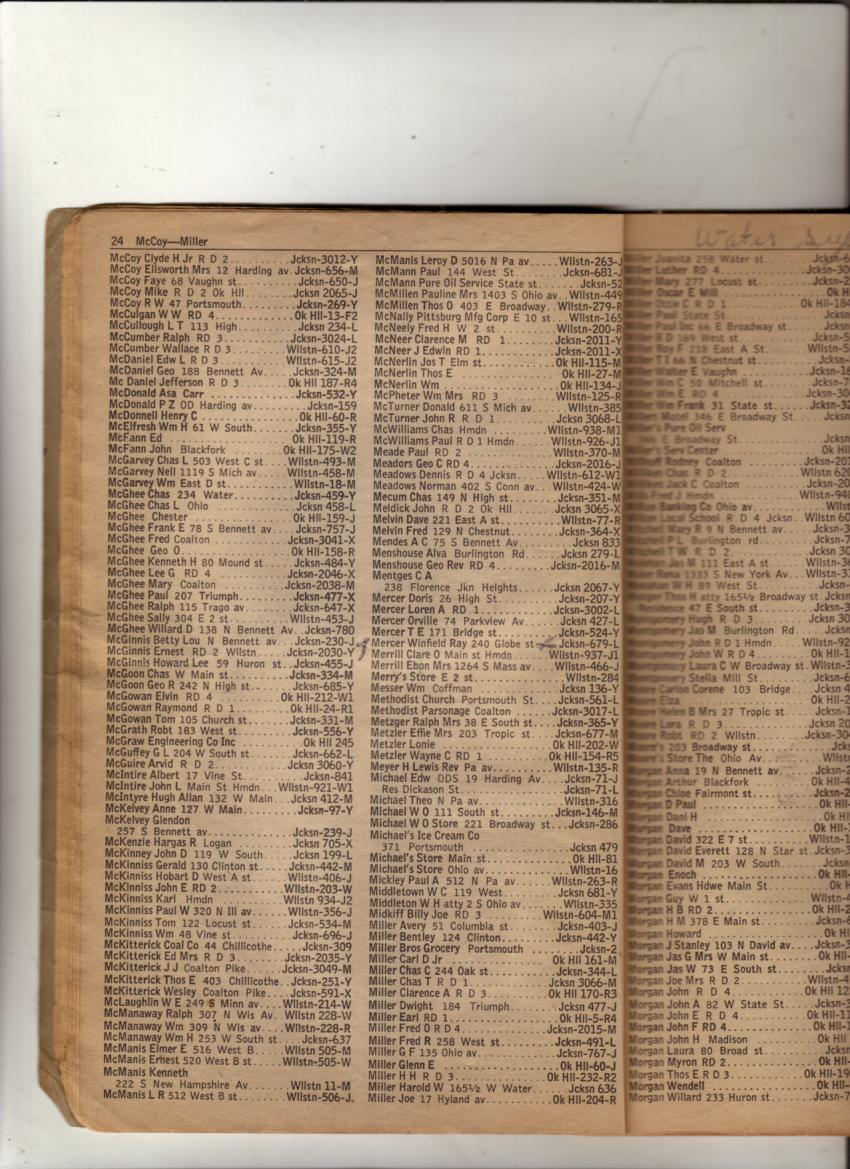 24 McCoy—Miller
McCoy Clyde H Jr R D 2 Jcksn-3012-Y
McCoy Ellsworth Mrs 12 Harding av Jcksn-656-M
McCoy Faye 68 Vaughn st Jcksn-650-J
McCoy Mike R D 2 Ok Hll Jcksn 2065-J
McCoy R W 47 Portsmouth Jcksn-269-Y
McCulgan W W RD 4 Ok Hll-13-F2
McCullough L T 113 High Jcksn 234-L
McCumber Ralph RD 3 Jcksn-3024-L
McCumber Wallace R D 3 Wllstn-610-J2
McDaniel Edw L R D 3 Wllstn-615-J2
McDaniel Geo 188 Bennett Av Jcksn-324-M
Mc Daniel Jefferson R D 3 Ok Hll 187-R4
McDonald Asa Carr Jcksn-532-Y
McDonald P Z OD Harding av Jcksn-159
McDonnell Henry C Ok Hll-60-R
McElfresh Wm H 61 W South Jcksn-355-Y
McFann Ed Ok Hll-119-R
McFann John Blackfork Ok Hll-175-W2
McGarvey Chas L 503 West C st Wllstn-493-M
McGarvey Nell 1119 S Mich av Wllstn-458-M
McGarvey Wm East D st Wllstn-18-M
McGhee Chas 234 Water Jcksn-459-Y
McGhee Chas L Ohio Jcksn 458-L
McGhee Chester Ok Hll-159-J
McGhee Frank E 78 S Bennett av Jcksn-757-J
McGhee Fred Coalton Jcksn-3041-X
McGhee Geo O Ok Hll-158-R
McGhee Kenneth H 80 Mound st Jcksn-484-Y
McGhee Lee G RD 4 Jcksn-2046-X
McGhee Mary Coalton Jcksn-2038-M
McGhee Paul 207 Triumph Jcksn-477-X
McGhee Ralph 115 Trago av Jcksn-647-X
McGhee Sally 304 E 2 st Wllstn-453-J
McGhee Willard D 138 N Bennett Av Jcksn-780
McGinnis Betty Lou N Bennett av Jcksn-230-J
McGinnis Ernest RD 2 Wllstn Jcksn-2030-Y
McGinnis Howard Lee 59 Huron st Jcksn-455-J
McGoon Chas W Main st Jcksn-334-M
McGoon Geo R 242 N High st Jcksn-685-Y
McGowan Elvin RD 4 Ok Hll-212-W1
McGowan Raymond R D 1 Ok Hll-24-R1
McGowan Tom 105 Church st Jcksn-331-M
McGrath Robt 183 West st Jcksn-556-Y
McGraw Engineering Co Inc Ok Hll 245
McGuffey G L 204 W South st Jcksn-662-L
McGuire Arvid R D 2 Jcksn 3060-Y
McIntire Albert 17 Vine St Jcksn-841
McIntire John L Main St Hmdn Wllstn-921-W1
McIntyre Hugh Allan 132 W Main Jcksn 412-M
McKelvey Anne 127 W Main Jcksn-97-Y
McKelvey Glendon
257 S Bennett av Jcksn-239-J
McKenzie Hargas R Logan Jcksn 705-X
McKinney John D 119 W South Jcksn 199-L
McKinniss Gerald 130 Clinton st Jcksn-442-M
McKinniss Hobart D West A st Wllstn-406-J
McKinniss John E RD 2 Wllstn-203-W
McKinniss Karl Hmdn Wllstn 934-J2
McKinniss Paul W 320 N Ill av Wllstn-356-J
McKinniss Tom 122 Locust st Jcksn-534-M
McKinniss Wm 48 Vine st Jcksn-696-J
McKitterick Coal Co 44 Chillicothe Jcksn-309
McKitterick Ed Mrs R D 3 Jcksn-2035-Y
McKitterick J J Coalton Pike Jcksn-3049-M
McKitterick Thos E 403 Chillicothe Jcksn-251-Y
McKitterick Wesley Coalton Pike Jcksn-591-X
McLaughlin W E 249 S Minn av Wllstn-214-W
McManaway Ralph 307 N Wis Av Wllstn 228-W
McManaway Wm 309 N Wis av Wllstn-228-R
McManaway Wm H 253 W South st Jcksn-637
McManis Elmer E 516 West B Wllstn 505-M
McManis Ernest 520 West B st Wllstn-505-W
McManis Kenneth
222 S New Hampshire Av Wllstn 11-M
McManis L R 512 West B st Wllstn-506-J
McManis Leroy D 5016 N Pa av Wllstn-263-J
McMann Paul 144 West St Jcksn-681-J
McMann Pure Oil Service State st Jcksn-52
McMillen Pauline Mrs 1403 S Ohio av Wllstn-449
McMillen Thos O 403 E Broadway Wllstn-279-R
McNally Pittsburg Mfg Corp E 10 st Wllstn-165
McNeely Fred H W 2 st Wllstn-200-R
McNeer Clarence M RD 1 Jcksn-2011-Y
McNeer J Edwin RD 1 Jcksn-2011-X
McNerlin Jos T Elm st Ok Hll-115-M
McNerlin Thos E Ok Hll-27-M
McNerlin Wm Ok Hll-134-J
McPheter Wm Mrs RD 3 Wllstn-125-R
McTurner Donald 611 S Mich av Wllstn-385
McTurner John R R D 1 Jcksn 3068-L
McWilliams Chas Hmdn Wllstn-938-M1
McWilliams Paul R D 1 Hmdn Wllstn-926-J1
Meade Paul RD 2 Wllstn-370-M
Meadors Geo C RD 4 Jcksn-2016-J
Meadows Dennis RD 4 Jcksn Wllstn-612-W1
Meadows Norman 402 S Conn av Wllstn-424-W
Mecum Chas 149 N High st Jcksn-351-M
Meldick John R D 2 Ok Hll Jcksn 3065-X
Melvin Dave 221 East A st Wllstn-77-R
Melvin Fred 129 N Chestnut Jcksn-364-X
Mendes A C 75 S Bennett Av Jcksn 833
Menshouse Alva Burlington Rd Jcksn 279-L
Menshouse Geo Rev RD 4 Jcksn-2016-M
Mentges C A
238 Florence Jkn Heights Jcksn 2067-Y
Mercer Doris 26 High St Jcksn-207-Y
Mercer Loren A RD 1 Jcksn-3002-L
Mercer Orville 74 Parkview Av Jcksn 427-L
Mercer T E 171 Bridge st Jcksn-524-Y
Mercer Winfield Ray 240 Globe st Jcksn-679-L
Merrill Clare O Main st Hmdn Wllstn-937-J1
Merrill Ebon Mrs 1264 S Mass av Wllstn-466-J
Merry's Store E 2 st Wllstn-284
Messer Wm Coffman Jcksn 136-Y
Methodist Church Portsmouth St Jcksn-561-L
Methodist Parsonage Coalton Jcksn-3017-L
Metzger Ralph Mrs 38 E South st Jcksn-365-Y
Metzler Effie Mrs 203 Tropic st Jcksn-677-M
Metzler Lonie Ok Hll-202-W
Metzler Wayne C RD 1 Ok Hll-154-R5
Meyer H Lewis Rev Pa av Wllstn-135-R
Michael Edw DDS 19 Harding Av Jcksn-71-J
Res Dickason St Jcksn-71-L
Michael Theo N Pa av Wllstn-316
Michael W O 111 South st Jcksn-146-M
Michael W O Store 221 Broadway st Jcksn-286
Michael's Ice Cream Co
371 Portsmouth Jcksn 479
Michael's Store Main st Ok Hll-81
Michael's Store Ohio av Wllstn-16
Mickley Paul A 512 N Pa av Wllstn-263-R
Middletown W C 119 West Jcksn 681-Y
Middleton W H atty 2 S Ohio av Wllstn-335
Midkiff Billy Joe RD 3 Wllstn-604-M1
Miller Avery 51 Columbia st Jcksn-403-J
Miller Bentley 124 Clinton Jcksn-442-Y
Miller Bros Grocery Portsmouth Jcksn-2
Miller Carl D Jr Ok Hll 161-M
Miller Chas C 244 Oak st Jcksn-344-L
Miller Chas T R D 1 Jcksn 3066-M
Miller Clarence A R D 3 Ok Hll 170-R3
Miller Dwight 184 Triumph Jcksn 477-J
Miller Earl RD 1 Ok Hll-5-R4
Miller Fred O RD 4 Jcksn-2015-M
Miller Fred R 258 West st Jcksn-491-L
Miller G F 135 Ohio av Jcksn-767-J
Miller Glenn E Ok Hll-60-J
Miller H H R D 3 Ok Hll-232-R2
Miller Harold W 165½ W Water Jcksn 636
Miller Joe 17 Hyland av Ok Hll-204-R
Water
Juanita 258 Water st
Luther RD 4
Mary 277 Locust st
Oscar E Mill
Paul State St
Paul Inc 66 E Broadway st
RD 169 West st
Roy F 218 East A St
J T 66 N Chestnut st
Walter E Vaughn
Wm C 50 Mitchell st
Wm E RD 4
Wm Frank 31 State st
Motel 346 E Broadway St
Pure Oil Serv
E Broadway St
Serv Center
Rodney Coalton
Chas R D 2
Jack C Coalton
Fred J Hmdn
Banking Co Ohio av
Local School R D 4 Jcksn
Mary R 9 N Bennett av
P L Burlington rd
T W R D 2
Jas M 111 East A st
1333 S New York Av
W H 89 West St
Thos H atty 165½ Broadway st
47 E South st
Hugh R D 3
Jas M Burlington Rd
John R D 1 Hmdn
John W R D 4
Laura C W Broadway st
Stella Mill St
Corene 103 Bridge
Elza
Helen B Mrs 27 Tropic st
Lora R D 3
Robt RD 2 Wllstn
203 Broadway st
Store The Ohio Av
Morgan Anna 19 N Bennett av
Morgan Arthur Blackfork
Morgan Chloe Fairmont st
Morgan D Paul
Morgan Dani H
Morgan Dave
Morgan David 322 E 7 st
Morgan David Everett 128 N Star st
Morgan David M 203 W South
Morgan Enoch
Morgan Evans Hdwe Main St
Morgan Guy W 1 st
Morgan H B RD 2
Morgan H M 378 E Main st
Morgan Howard
Morgan J Stanley 103 N David av
Morgan Jas G Mrs W Main st
Morgan Jas W 73 E South st
Morgan Joe Mrs R D 2
Morgan John R D 4
Morgan John A 82 W State St
Morgan John E R D 4
Morgan John F RD 4
Morgan John H Madison
Morgan Laura 80 Broad st
Morgan Myron RD 2
Morgan Thos E R D 3
Morgan Wendell
Morgan Willard 233 Huron st